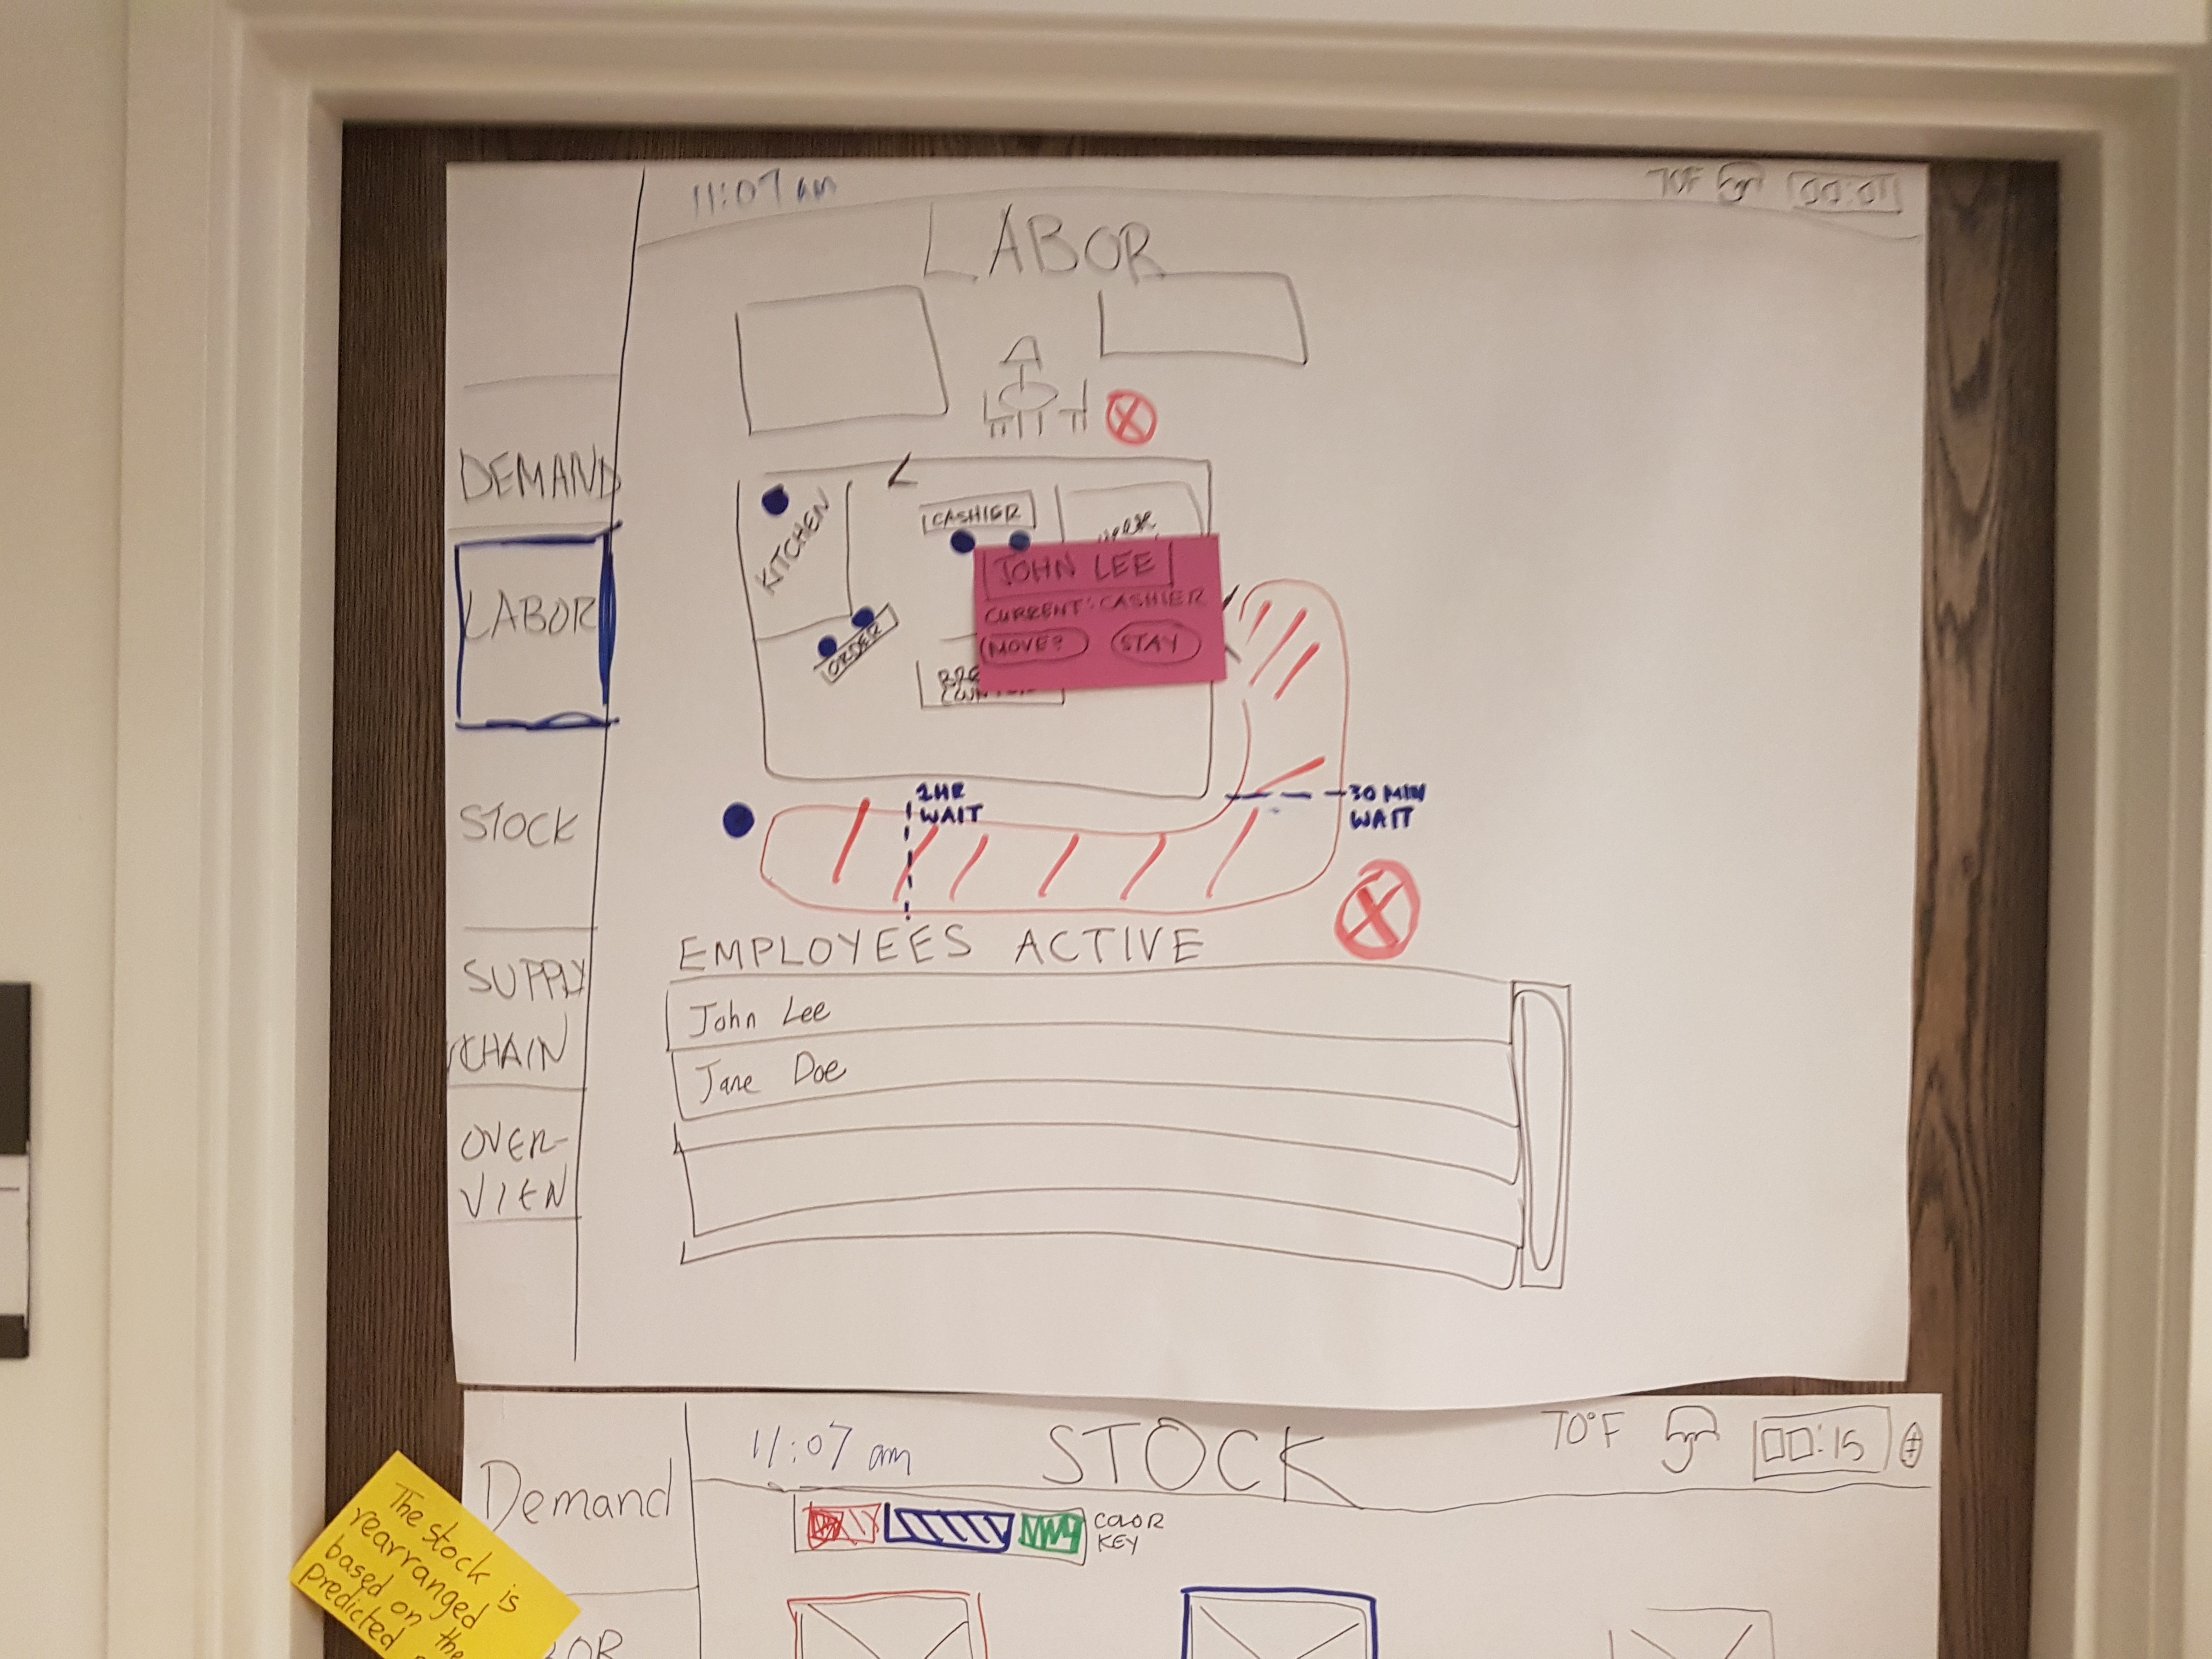 11:07 am
70F
LABOR
DEMAND
LABOR
STOCK
SUPPLY
CHAIN
OVER-
VIEW
KITCHEN
CASHIER
ORDER
JOHN LEE
CURRENT: CASHIER
MOVE? STAY
1HR
WAIT
30 MIN
WAIT
EMPLOYEES ACTIVE
John Lee
Jane Doe
11:07 am
STOCK
70°F
00:15
Demand
COLOR
KEY
The stock is
rearranged
based on the
predicted